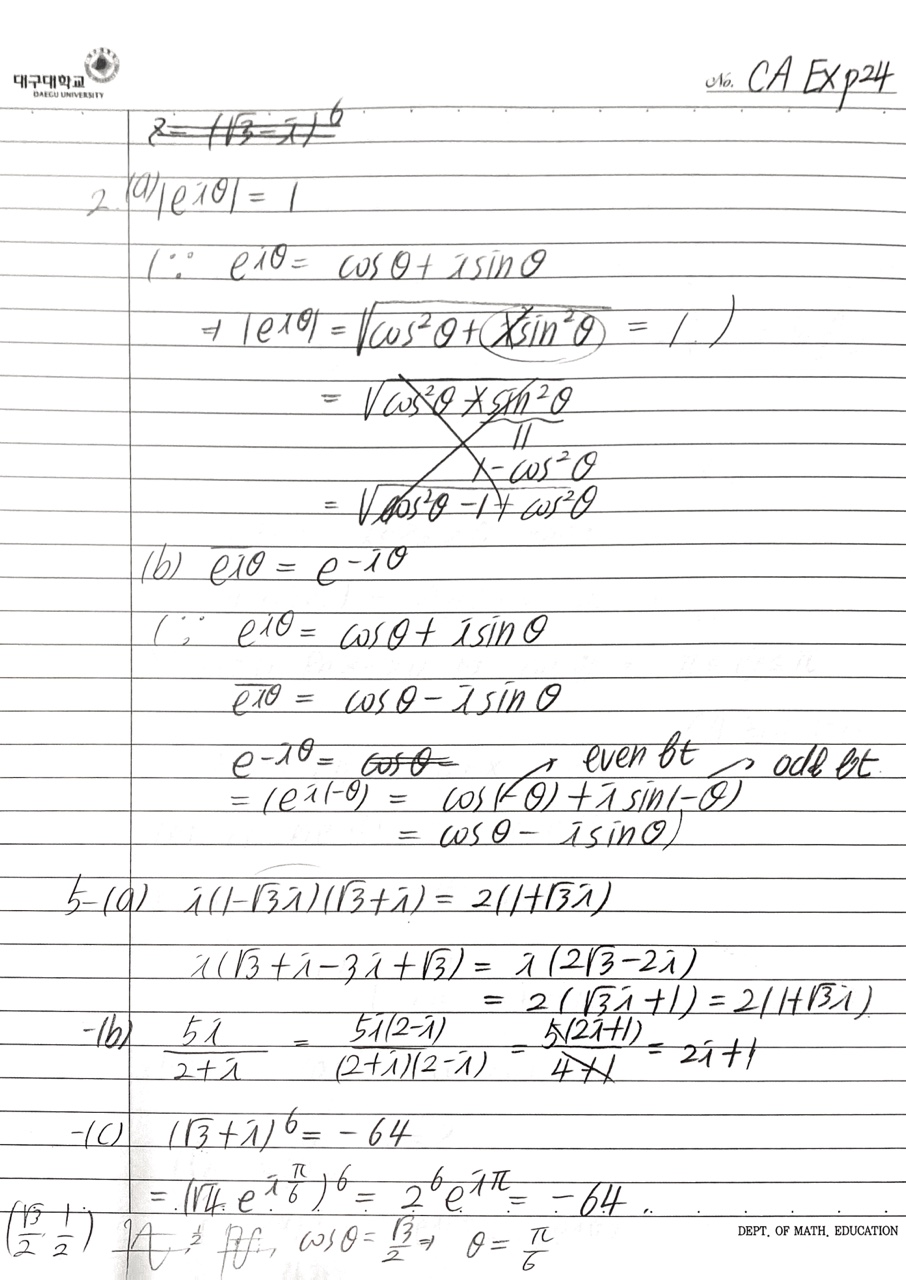 대구대학교
DAEGU UNIVERSITY
No. CA Exp24
z = (√3 - i)^6
2. (a) |e^iθ| = 1
(∵ e^iθ = cosθ + i sinθ
⇒ |e^iθ| = √(cos²θ + sin²θ) = 1. )
= √(cos²θ + sin²θ)
1 - cos²θ
= √(cos²θ - 1 + cos²θ)
(b) \overline{e^iθ} = e^-iθ
(∵ e^iθ = cosθ + i sinθ
\overline{e^iθ} = cosθ - i sinθ
e^-iθ = cosθ → even ft → odd ft.
= (e^i(-θ) = cos(-θ) + i sin(-θ)
= cosθ - i sinθ)
5-(a) i(1-√3i)(√3+i) = 2(1+√3i)
i(√3 + i - 3i + √3) = i(2√3 - 2i)
= 2(√3i + 1) = 2(1+√3i)
-(b) 5i/(2+i) = 5i(2-i)/((2+i)(2-i)) = 5(2i+1)/(4+1) = 2i+1
-(c) (√3+i)^6 = -64
= (√4 e^(i π/6))^6 = 2^6 e^iπ = -64 ..
(√3/2, 1/2) cosθ = √3/2 ⇒ θ = π/6
DEPT. OF MATH. EDUCATION